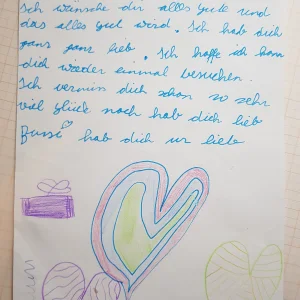 Ich wünsche dir alles gute und
das alles gut wird. Ich hab dich
ganz ganz lieb. Ich hoffe ich kann
dich wieder einmal besuchen.
Ich vermiss dich schon so sehr
viel Glück noch hab dich lieb
Bussi hab dich ur liebe